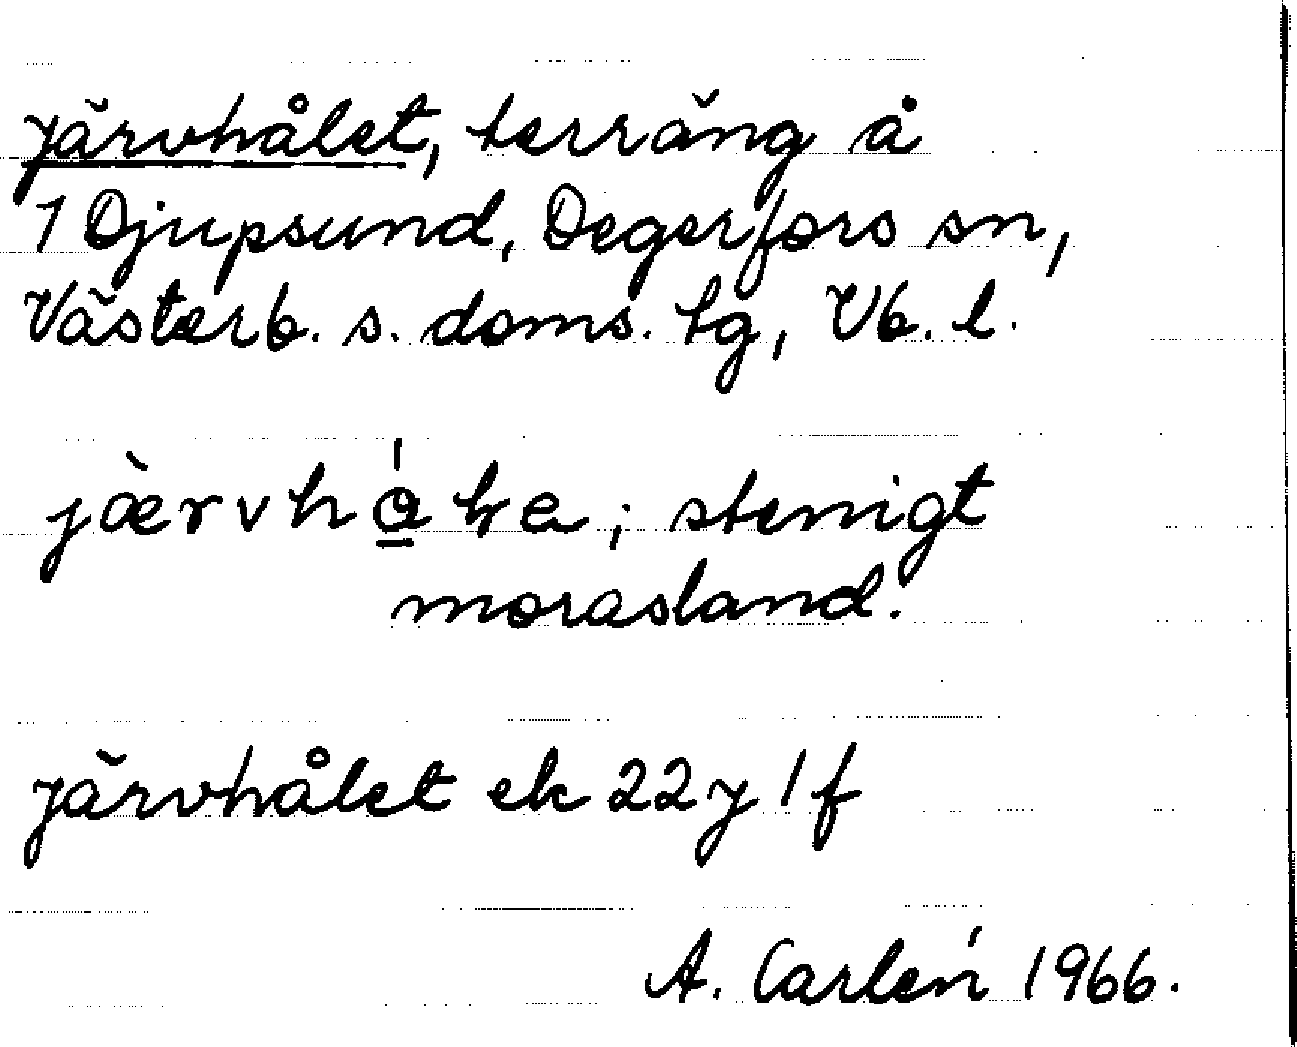 Järvhålet, terräng å
1 Djupsund, Degerfors sn,
Västerb. s. doms. tg, Vb. l.
stenigt
morasland.
Järvhålet ek 22 y 1 f
A. Carlén 1966.